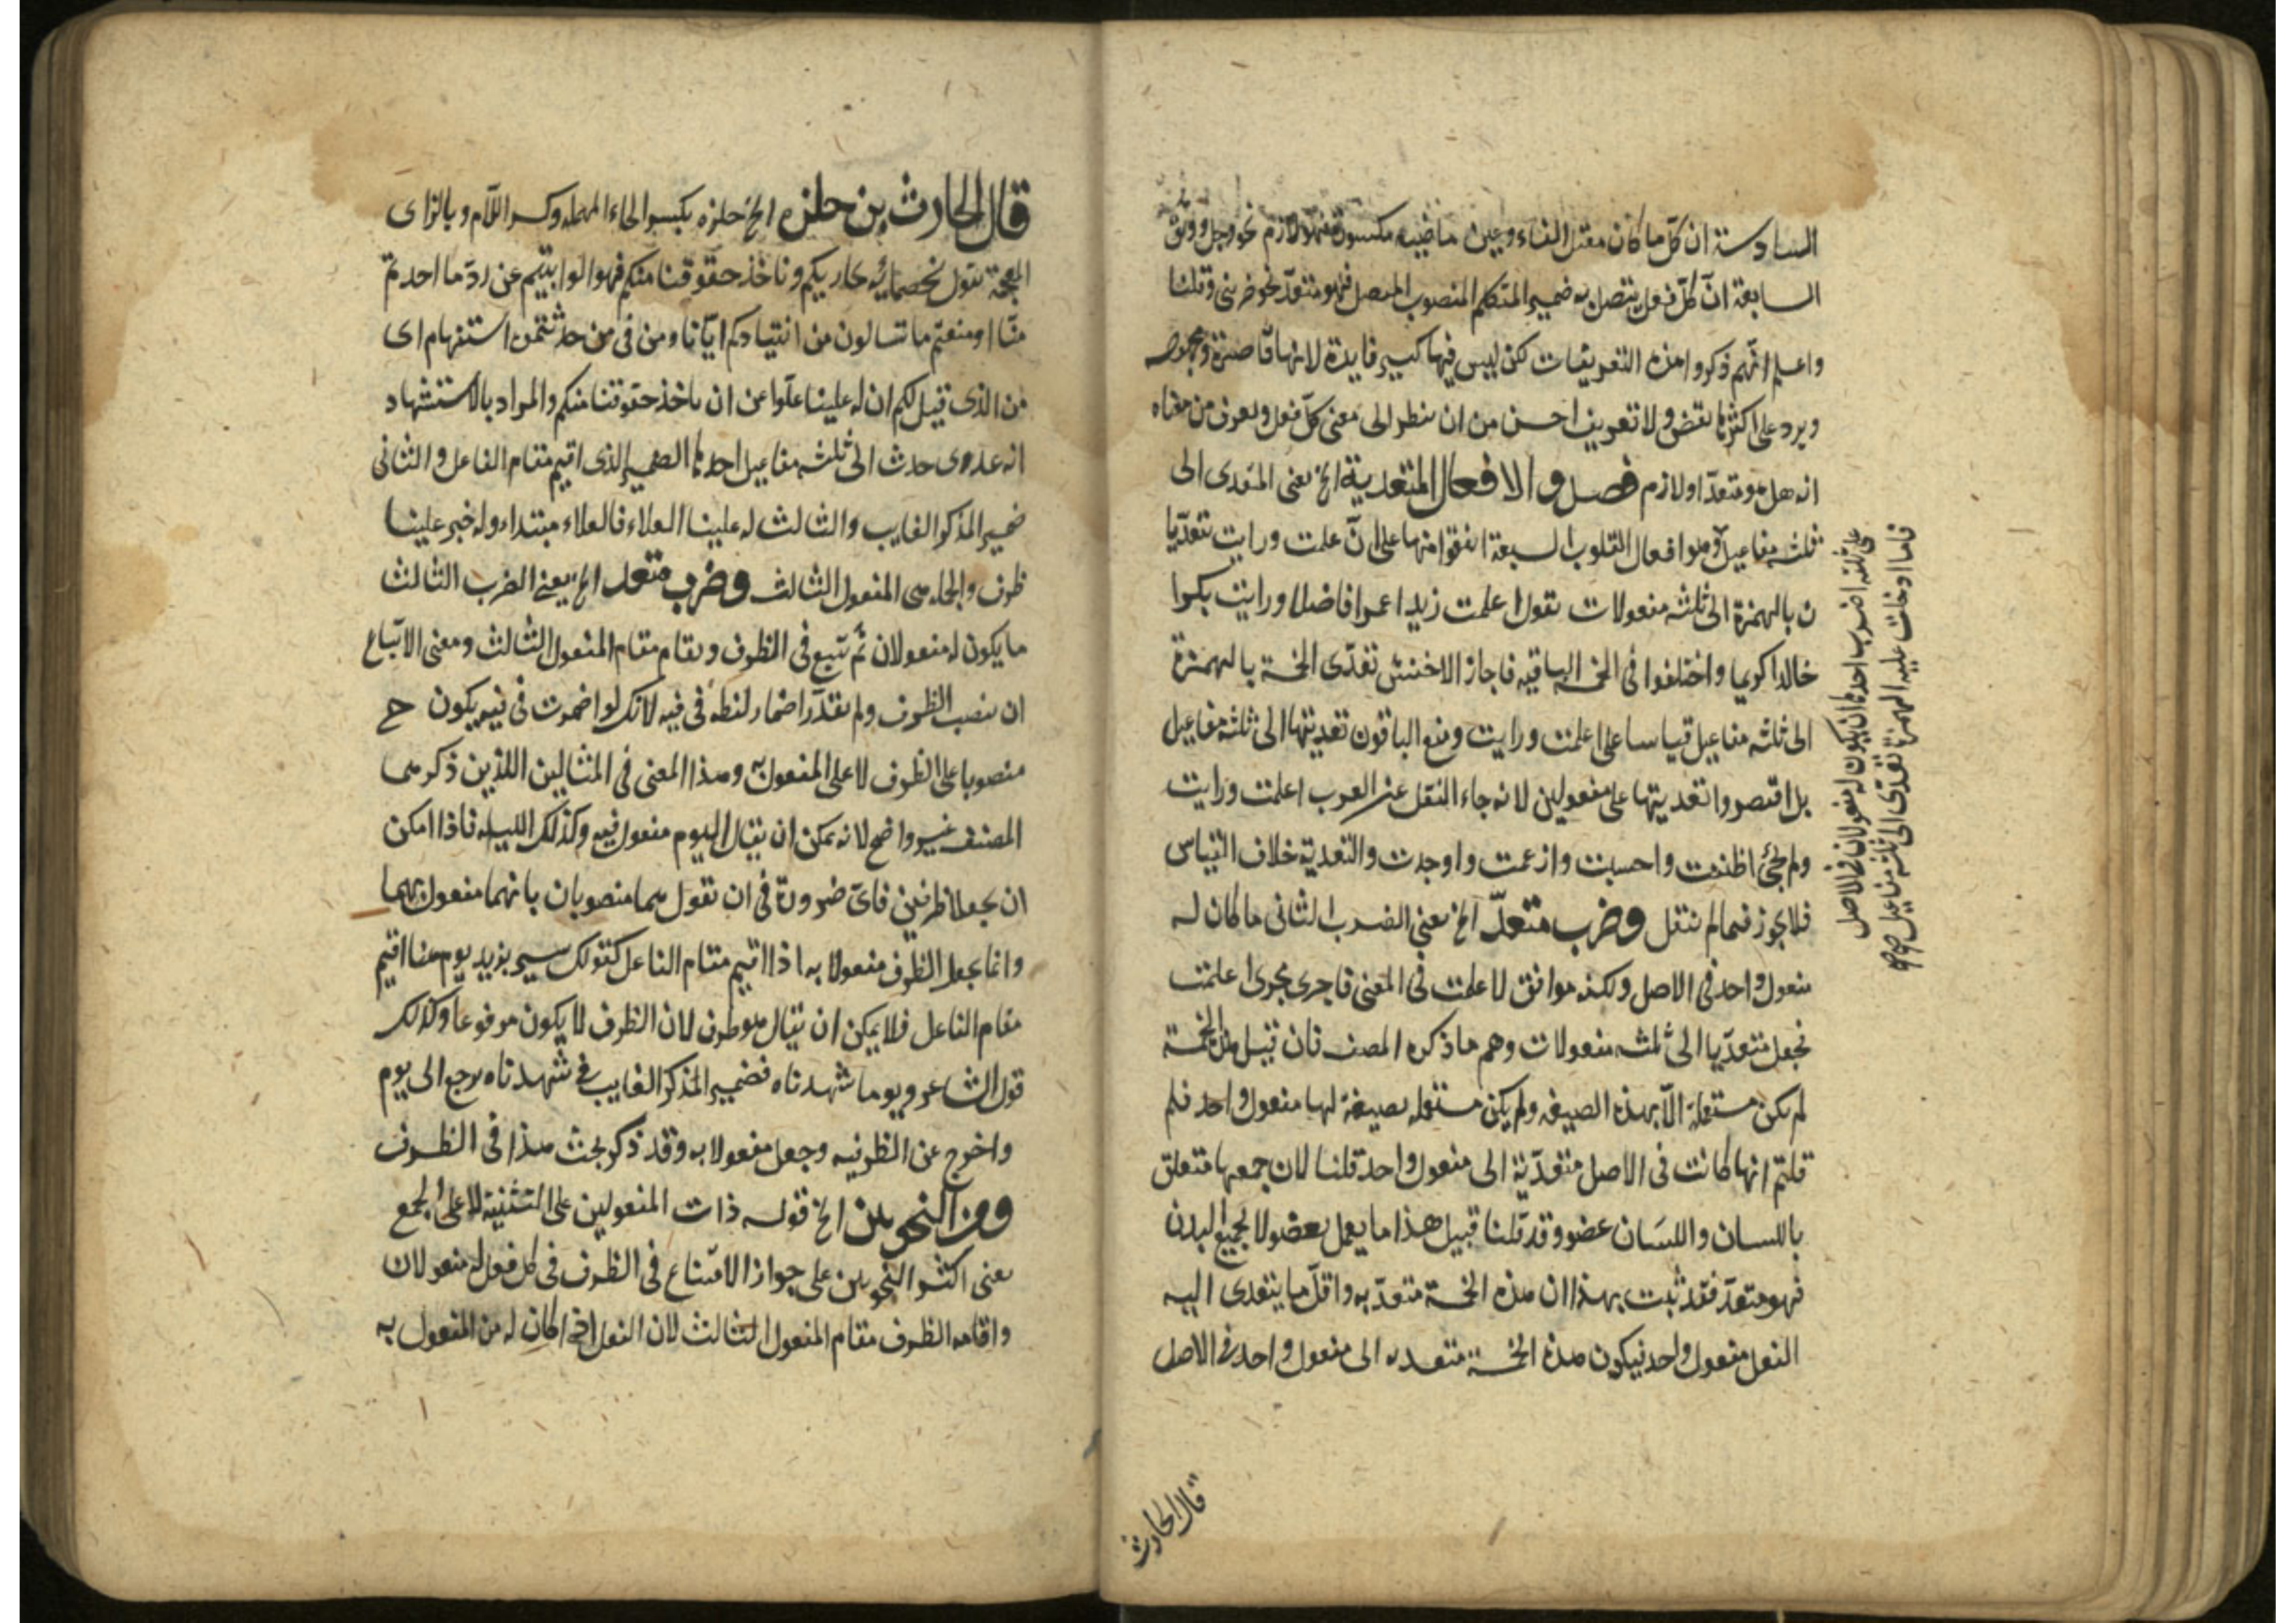 السادسة ان كلّ ما كان معتل الفاء وعين ماضيه مكسورة فهو لازم نحو وجل ووثق
السابعة انّ كلّ فعل يتصل به ضمير المتكلم المنصوب المتصل فهو متعدّ نحو ضربنى وقتلنا
واعلم انهم ذكروا هذه التعريفات لكن ليس فيها كبير فايدة لانها قاصرة
ويرد على اكثرها نقض ولا تعريف احسن من ان ينظر الى معنى كلّ فعل ويعرف من معناه
انه هل هو متعدّ او لازم فصل والافعال المتعدية الخ يعنى المتعدى الى
ثلثه مفاعيل وهو افعال القلوب السبعة اتفقوا منها على انّ علمت ورايت تتعدّيا
ن بالهمزة الى ثلثه مفعولات تقول اعلمت زيدا عمرا فاضلا ورايت بكرا
خالدا كريما واختلفوا فى الخمسة الباقيه فاجاز الاخفش تعدّى الخمسة بالهمزة
الى ثلثه مفاعيل قياسا على اعلمت ورايت ومنع الباقون تعديتها الى ثلثه مفاعيل
بل اقتصروا تعديتها على مفعولين لانه جاء النقل عن العرب اعلمت ورايت
ولم يجئ اظننت واحسبت وازعمت واوجدت والتعدية خلاف القياس
فلا يجوز فيما لم ينقل وضرب متعدّ الخ يعنى الضرب الثانى ما كان له
مفعول واحد فى الاصل ولكنه موافق لاعلمت فى المعنى فاجرى مجرى اعلمت
فجعل متعدّيا الى ثلثه مفعولات وهم ما ذكره المصنف فان قيل هذه الخمسة
لم يكن مستعملة الّا بهذه الصيغه ولم يكن مستعمله بصيغة لها مفعول واحد فلم
قلتم انها كانت فى الاصل متعدّية الى مفعول واحد قلنا لان جميعها متعلق
باللسان واللسَان عضو وقد قلنا قبيل هذا ما يعمل بعضو لا بجميع البدن
فهو متعدّ فقد ثبت بهذا ان هذه الخمسة متعدّيه واقلّ ما يتعدى اليه
الفعل مفعول واحد فيكون هذه الخمسة متعديه الى مفعول واحد فى الاصل
على ثلثه اضرب احدها ان يكون له مفعولان فى الاصل
فاما ادخلت عليه الهمزة تعدّى الى ثلثه مفاعيل
قال الحارث
قال الحارث بن حلزه الخ حلزه بكسر الحاء المهمله وكسر اللّام وبالزاى
المعجمة يقول لخصمائه نحاربكم وناخذ حقوقنا منكم فهو الوا بيتيم عن ردّ ما احدتم
منّا او منعتم ما تسالون من انقيادكم ايّانا ومن فى من حدثتمه استفهام اى
من الذى قيل لكم ان له علينا علوّا عن ان ناخذ حقوقنا منكم والمراد بالاستشهاد
انه عدى حدث الى ثلثه مفاعيل احدها الضمير الذى اقيم مقام الفاعل والثانى
ضمير المذكر الغايب والثالث له علينا العلاء فالعلاء مبتداء وله خبر علينا
ظرف والجمله هى المفعول الثالث وضرب متعد الخ يعنى الضرب الثالث
ما يكون له مفعولان ثم يتبع فى الظروف ويقام مقام المفعول الثالث ومعنى الاتباع
ان ينصب الظروف ولم يقدّر اضمار لفظه فى فيه لانك لو اضمرت فى فيه يكون ح
منصوبا على الظرف لا على المفعول به وهذا المعنى فى المثالين اللذين ذكرهما
المصنف غير واضح لانه يمكن ان يقال اليوم مفعول فيه وكذلك الليله فاذا امكن
ان يجعلا ظرفين فاىّ ضرورة فى ان نقول هما منصوبان بانهما مفعول بهما
وانما يجعل الظرف مفعولا به اذا اقيم مقام الفاعل كقولك سير بزيد يوم هنا اقيم
مقام الفاعل فلا يمكن ان يقال هو ظرف لان الظرف لا يكون مرفوعا وكذلك
قول الشاعر ويوما شهدناه فضمير المذكر الغايب فى شهدناه يرجع الى يوم
واخرج عن الظرفيه وجعل مفعولا به وقد ذكر بحث هذا فى الظرف
ومن النحويين الخ قوله ذات المفعولين على التثنية لا على الجمع
يعنى اكثر النحويين على جواز الاتساع فى الظرف فى كل فعل له مفعولان
واقامه الظرف مقام المفعول الثالث لان الفعل اذا كان له من المفعول به